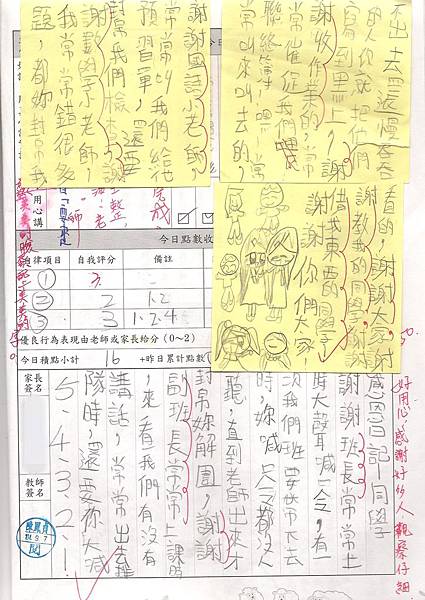 感恩日記—同學
謝謝班長常常上
時大聲喊口令，有
時，妳喊口令都沒人
聽，直到老師出來才
幫妳解圍，謝謝
副班長常常上課的
，來看我們有沒有
講話，常常出去排
隊時，還要你大喊
5、4、3、2、1！
不出去、還慢吞吞
的人你就把他們
寫到黑板上，謝
謝收作業的，常
常催促我們
聯絡簿
常叫來叫去的，
謝謝國語小老師，
常常叫我們給他
預習單，還要
幫我們檢查，謝
謝數學小老師，
我常常錯很多
題，都妳幫我
看的，謝謝大家，謝
謝教我的同學、謝
借我東西的同學，
謝謝你們大家。
好用心，感謝好的人，觀察仔細。
用心講
今日點數收
規律項目 自我評分 備註
① 3
② 2 1、2
③ 3 1、2、4
優良行為表現由老師或家長給分（0～2）
今日積點小計 16 +昨日累計點數
家長簽名
教師簽名